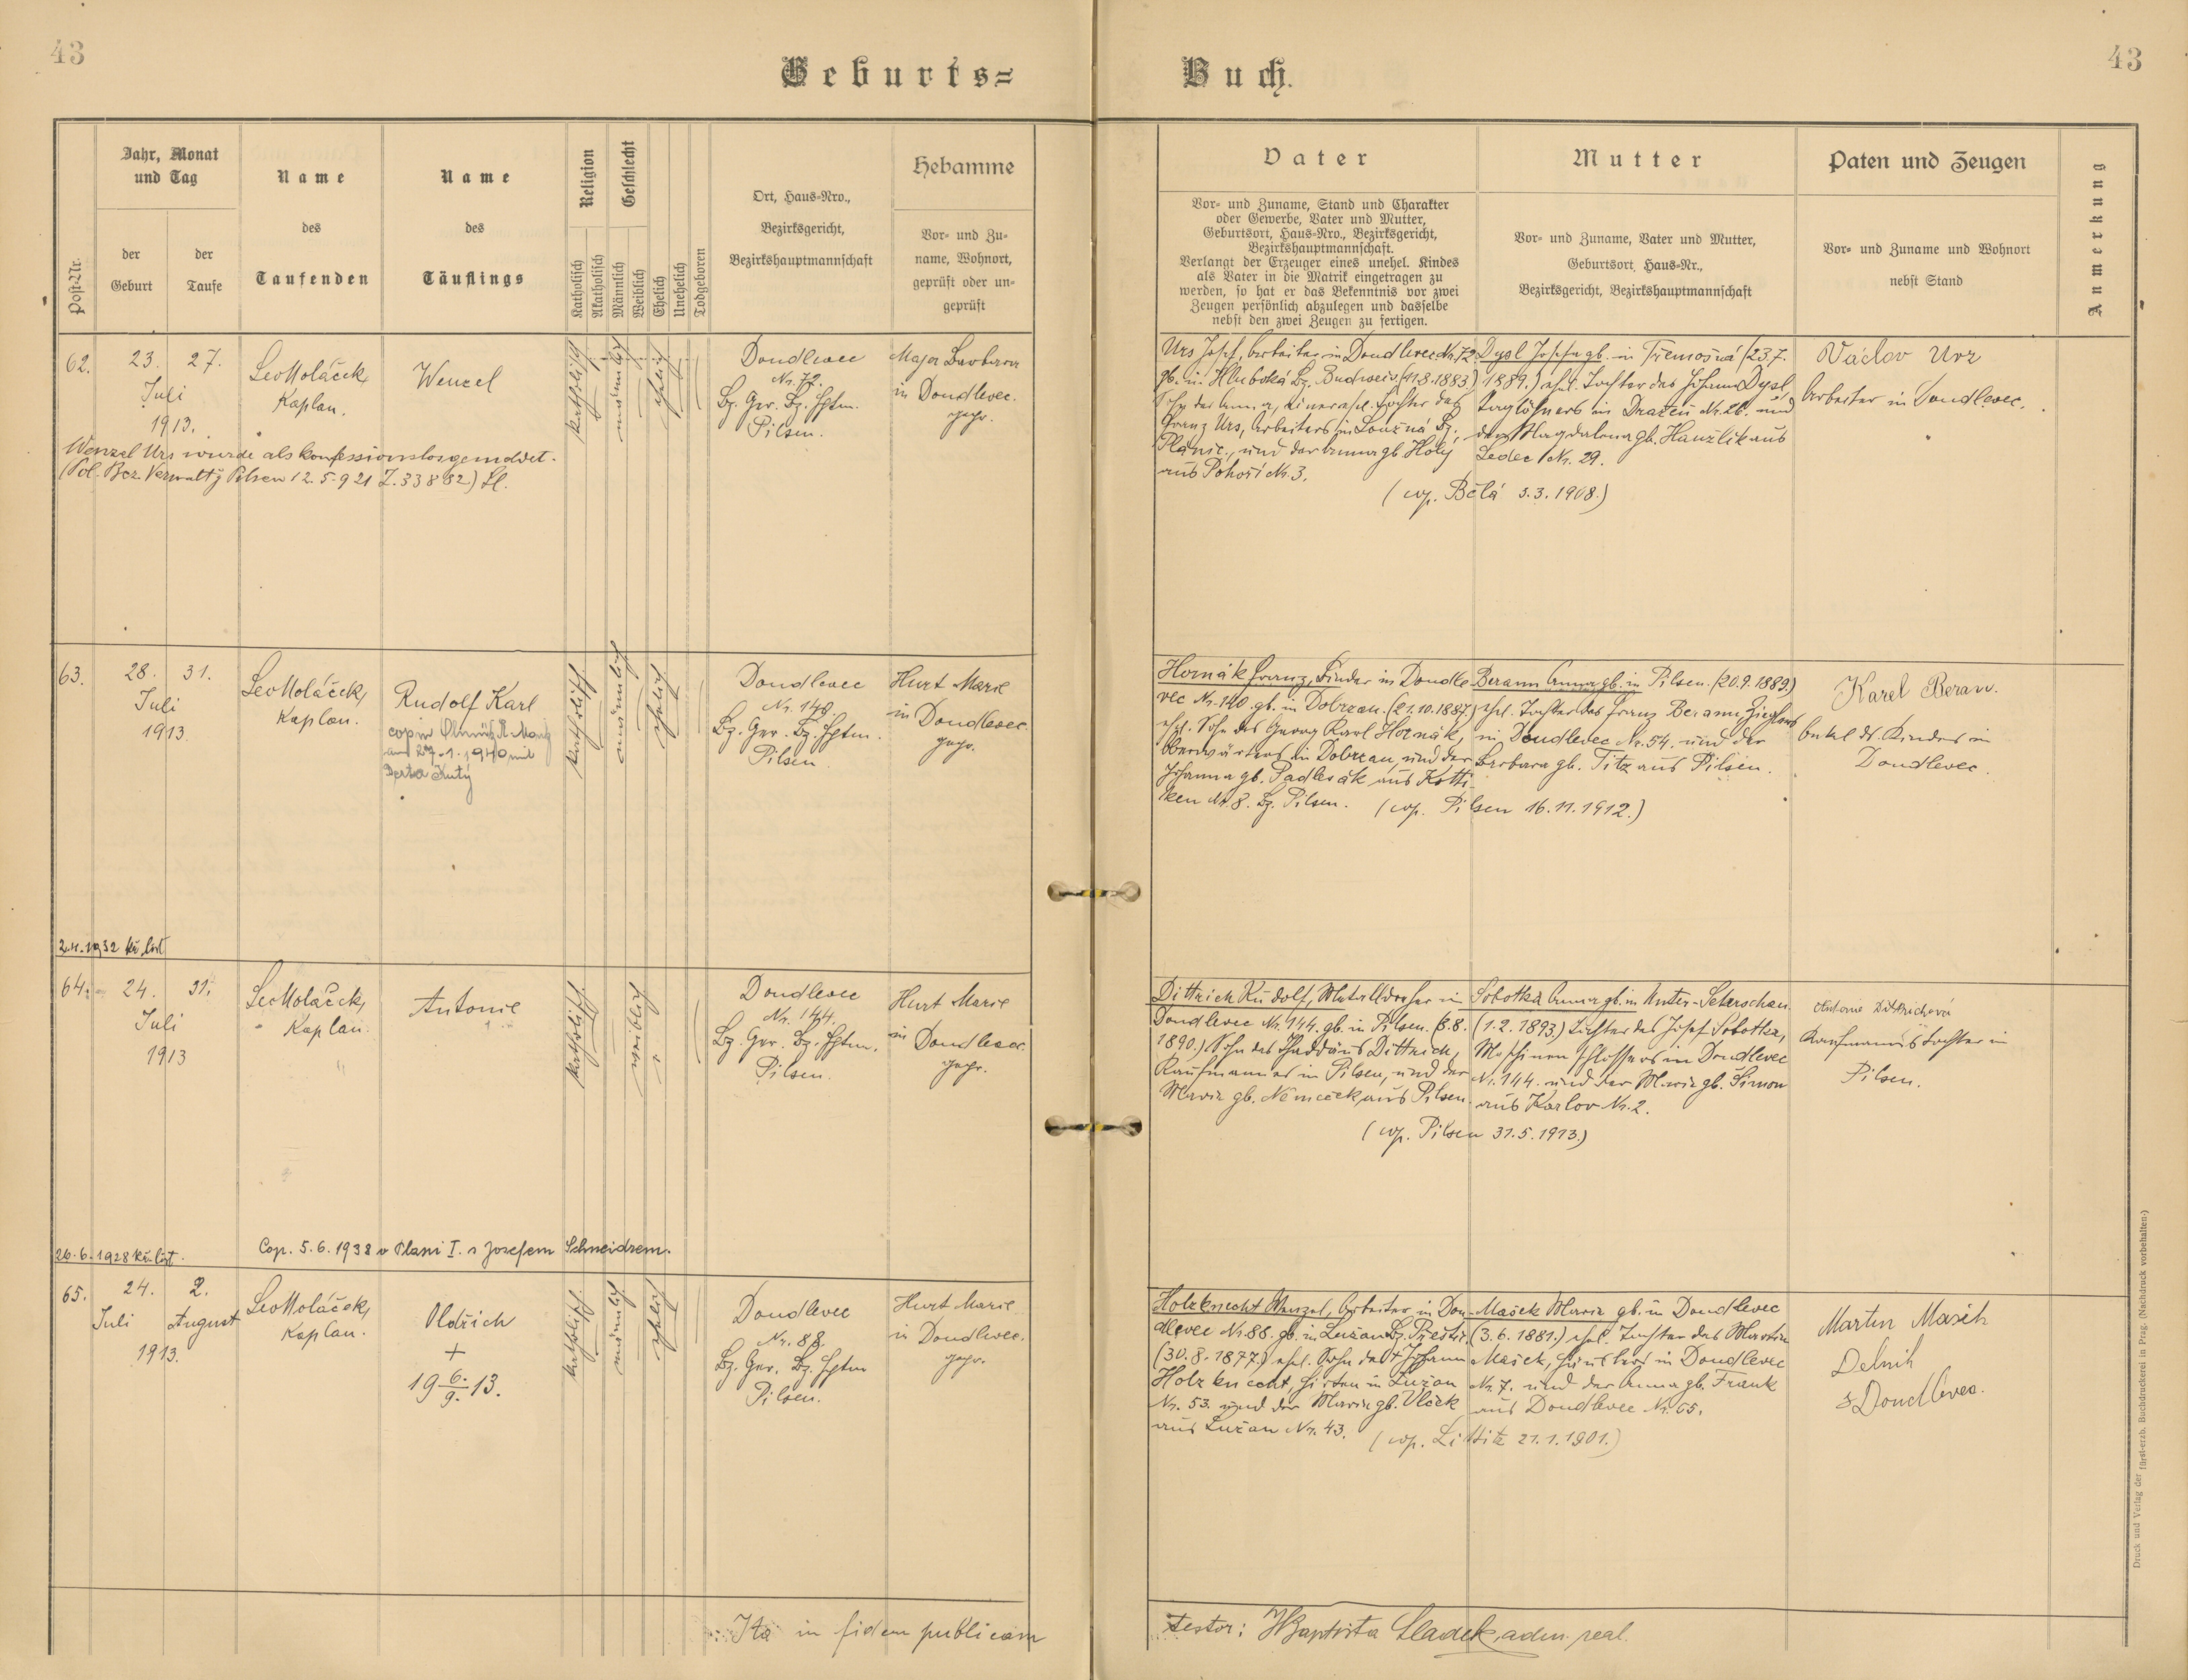 43
Geburts=
Jahr, Monat
und Tag
Name
Name
Religion
Geschlecht
Hebamme
Ort, Haus=Nro.,
des
des
Bezirksgericht,
Vor= und Zu=
der
der
name, Wohnort,
Post=Nr.
Geburt
Taufe
Taufenden
Täuflings
Katholisch
Akatholisch
Männlich
Weiblich
Ehelich
Unehelich
Todgeboren
Bezirkshauptmannschaft
geprüft oder un=
geprüft
62.
23.
27.
Juli
1913.
Leo Moláček,
Kaplan.
Wenzel
katholisch
männlich
ehelich
Doudlevec
Nr. 72.
Bz. Ger. Bz. Hptm.
Pilsen.
Major Barbara
in Doudlevec.
gepr.
Wenzel Urs wurde als konfessionslos gemeldet.
(Pol. Bez. Verwaltg Pilsen 12.5.921 Z. 33882) Sl.
63.
28.
31.
Juli
1913
Leo Moláček,
Kaplan.
Rudolf Karl
cop in Olmütz
am 27.1.1940 mit
katholisch
männlich
ehelich
Doudlevec
Nr. 140.
Bz. Ger. Bz. Hptm.
Pilsen.
Hurt Marie
in Doudlevec.
gepr.
2.4.1932 kř. list
64.
24.
31.
Juli
1913
Leo Moláček,
Kaplan.
Antonie
katholisch
weiblich
Doudlevec
Nr. 144.
Bz. Ger. Bz. Hptm.
Pilsen.
Hurt Marie
in Doudlevec.
gepr.
26.6.1928 kř. list.
Cop. 5.6.1938 v Plzni I. s Josefem Schneidrem.
65.
24.
2.
Juli
August
1913.
Leo Moláček,
Kaplan.
Oldřich
+
19 6./9. 13.
katholisch
männlich
ehelich
Doudlevec
Nr. 88.
Bz. Ger. Bz. Hptm
Pilsen.
Hurt Marie
in Doudlevec.
gepr.
Ita in fidem publicam
43
Buch.
Vater
Mutter
Paten und Zeugen
Anmerkung
Vor= und Zuname, Stand und Charakter
oder Gewerbe, Vater und Mutter,
Geburtsort, Haus=Nro., Bezirksgericht,
Bezirkshauptmannschaft.
Verlangt der Erzeuger eines unehel. Kindes
als Vater in die Matrik eingetragen zu
werden, so hat er das Bekenntnis vor zwei
Zeugen persönlich abzulegen und dasselbe
nebst den zwei Zeugen zu fertigen.
Vor= und Zuname, Vater und Mutter,
Geburtsort, Haus=Nr.,
Bezirksgericht, Bezirkshauptmannschaft
Vor= und Zuname und Wohnort
nebst Stand
Urs Josef, Arbeiter in Doudlevec Nr. 72
gb. in Hluboká Bz. Budweis. (11.8.1883)
Sohn der Anna, einer ehel. Tochter des
Franz Urs, Arbeiters in Loužná Bz.
Planic., und der Anna gb. Holý
aus Pohoří Nr. 3.
Dyol Josefa gb. in Třemošná (23.7.
1889.) ehel. Tochter des Johann Dyol,
Taglöhners in Dražeň Nr. 26. und
der Magdalena gb. Hauzlik aus
Ledec Nr. 29.
(cop. Bělá 3.3.1908.)
Václav Urz
Arbeiter in Doudlevec.
Hornák Franz, Binder in Doudle-
vec Nr. 140. gb. in Dobrzan. (21.10.1887.)
ehel. Sohn des Georg Karl Hornák,
Oberwärters in Dobrzan, und der
Johanna gb. Sadlecák aus Kotti-
ken Nr. 8. Bz. Pilsen.
Berann Anna gb. in Pilsen. (20.9.1889.)
ehel. Tochter des Franz Berann Zieglers
in Doudlevec Nr. 54. und der
Barbara gb. Titz aus Pilsen.
(cop. Pilsen 16.11.1912.)
Karel Beran.
Onkel ds. Kindes in
Doudlevec.
Dittrich Rudolf, Metalldreher in
Doudlevec Nr. 144. gb. in Pilsen. (8.8.
1890.) Sohn des Thaddäus Dittrich,
Kaufmannes in Pilsen, und der
Maria gb. Němeček aus Pilsen.
Sobotka Anna gb. in Unter-Sekerschan.
(1.2.1893.) Tochter des Josef Sobotka,
Maschinenschlossers in Doudlevec
Nr. 144. und der Maria gb. Šimon
aus Karlov Nr. 2.
(cop. Pilsen 31.5.1913.)
Antonie Dittrichová
Kaufmannstochter in
Pilsen.
Holzknecht Wenzel, Arbeiter in Dou-
dlevec Nr. 88. gb. in Lužan Bz. Přeštic.
(30.8.1877.) ehel. Sohn des + Johann
Holzknecht, Hirten in Lužan
Nr. 53. und der Maria gb. Vlček
aus Lužan Nr. 43.
Mašek Maria gb. in Doudlevec
(3.6.1881.) ehel. Tochter des Martin
Mašek, Häuslers in Doudlevec
Nr. 7. und der Anna gb. Frank
aus Doudlevec Nr. 65.
(cop. Littitz 21.1.1901.)
Martin Masek
Delnik
z Doudlevec.
testor: JBaptista Sladek, adm. real.
Druck und Verlag der fürst-erzb. Buchdruckerei in Prag. (Nachdruck vorbehalten.)